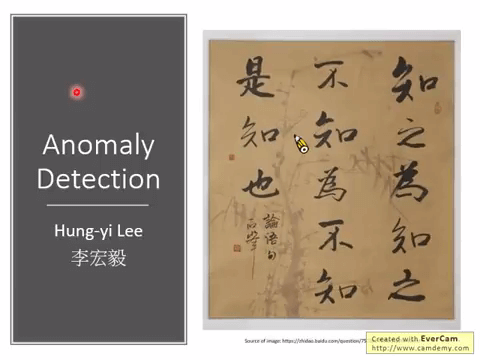 Anomaly
Detection
Hung-yi Lee
李宏毅
知之為知之
不知為不知
是知也
論語句
Source of image: https://zhidao.baidu.com/question/75
Created with EverCam.
http://www.camdemy.com